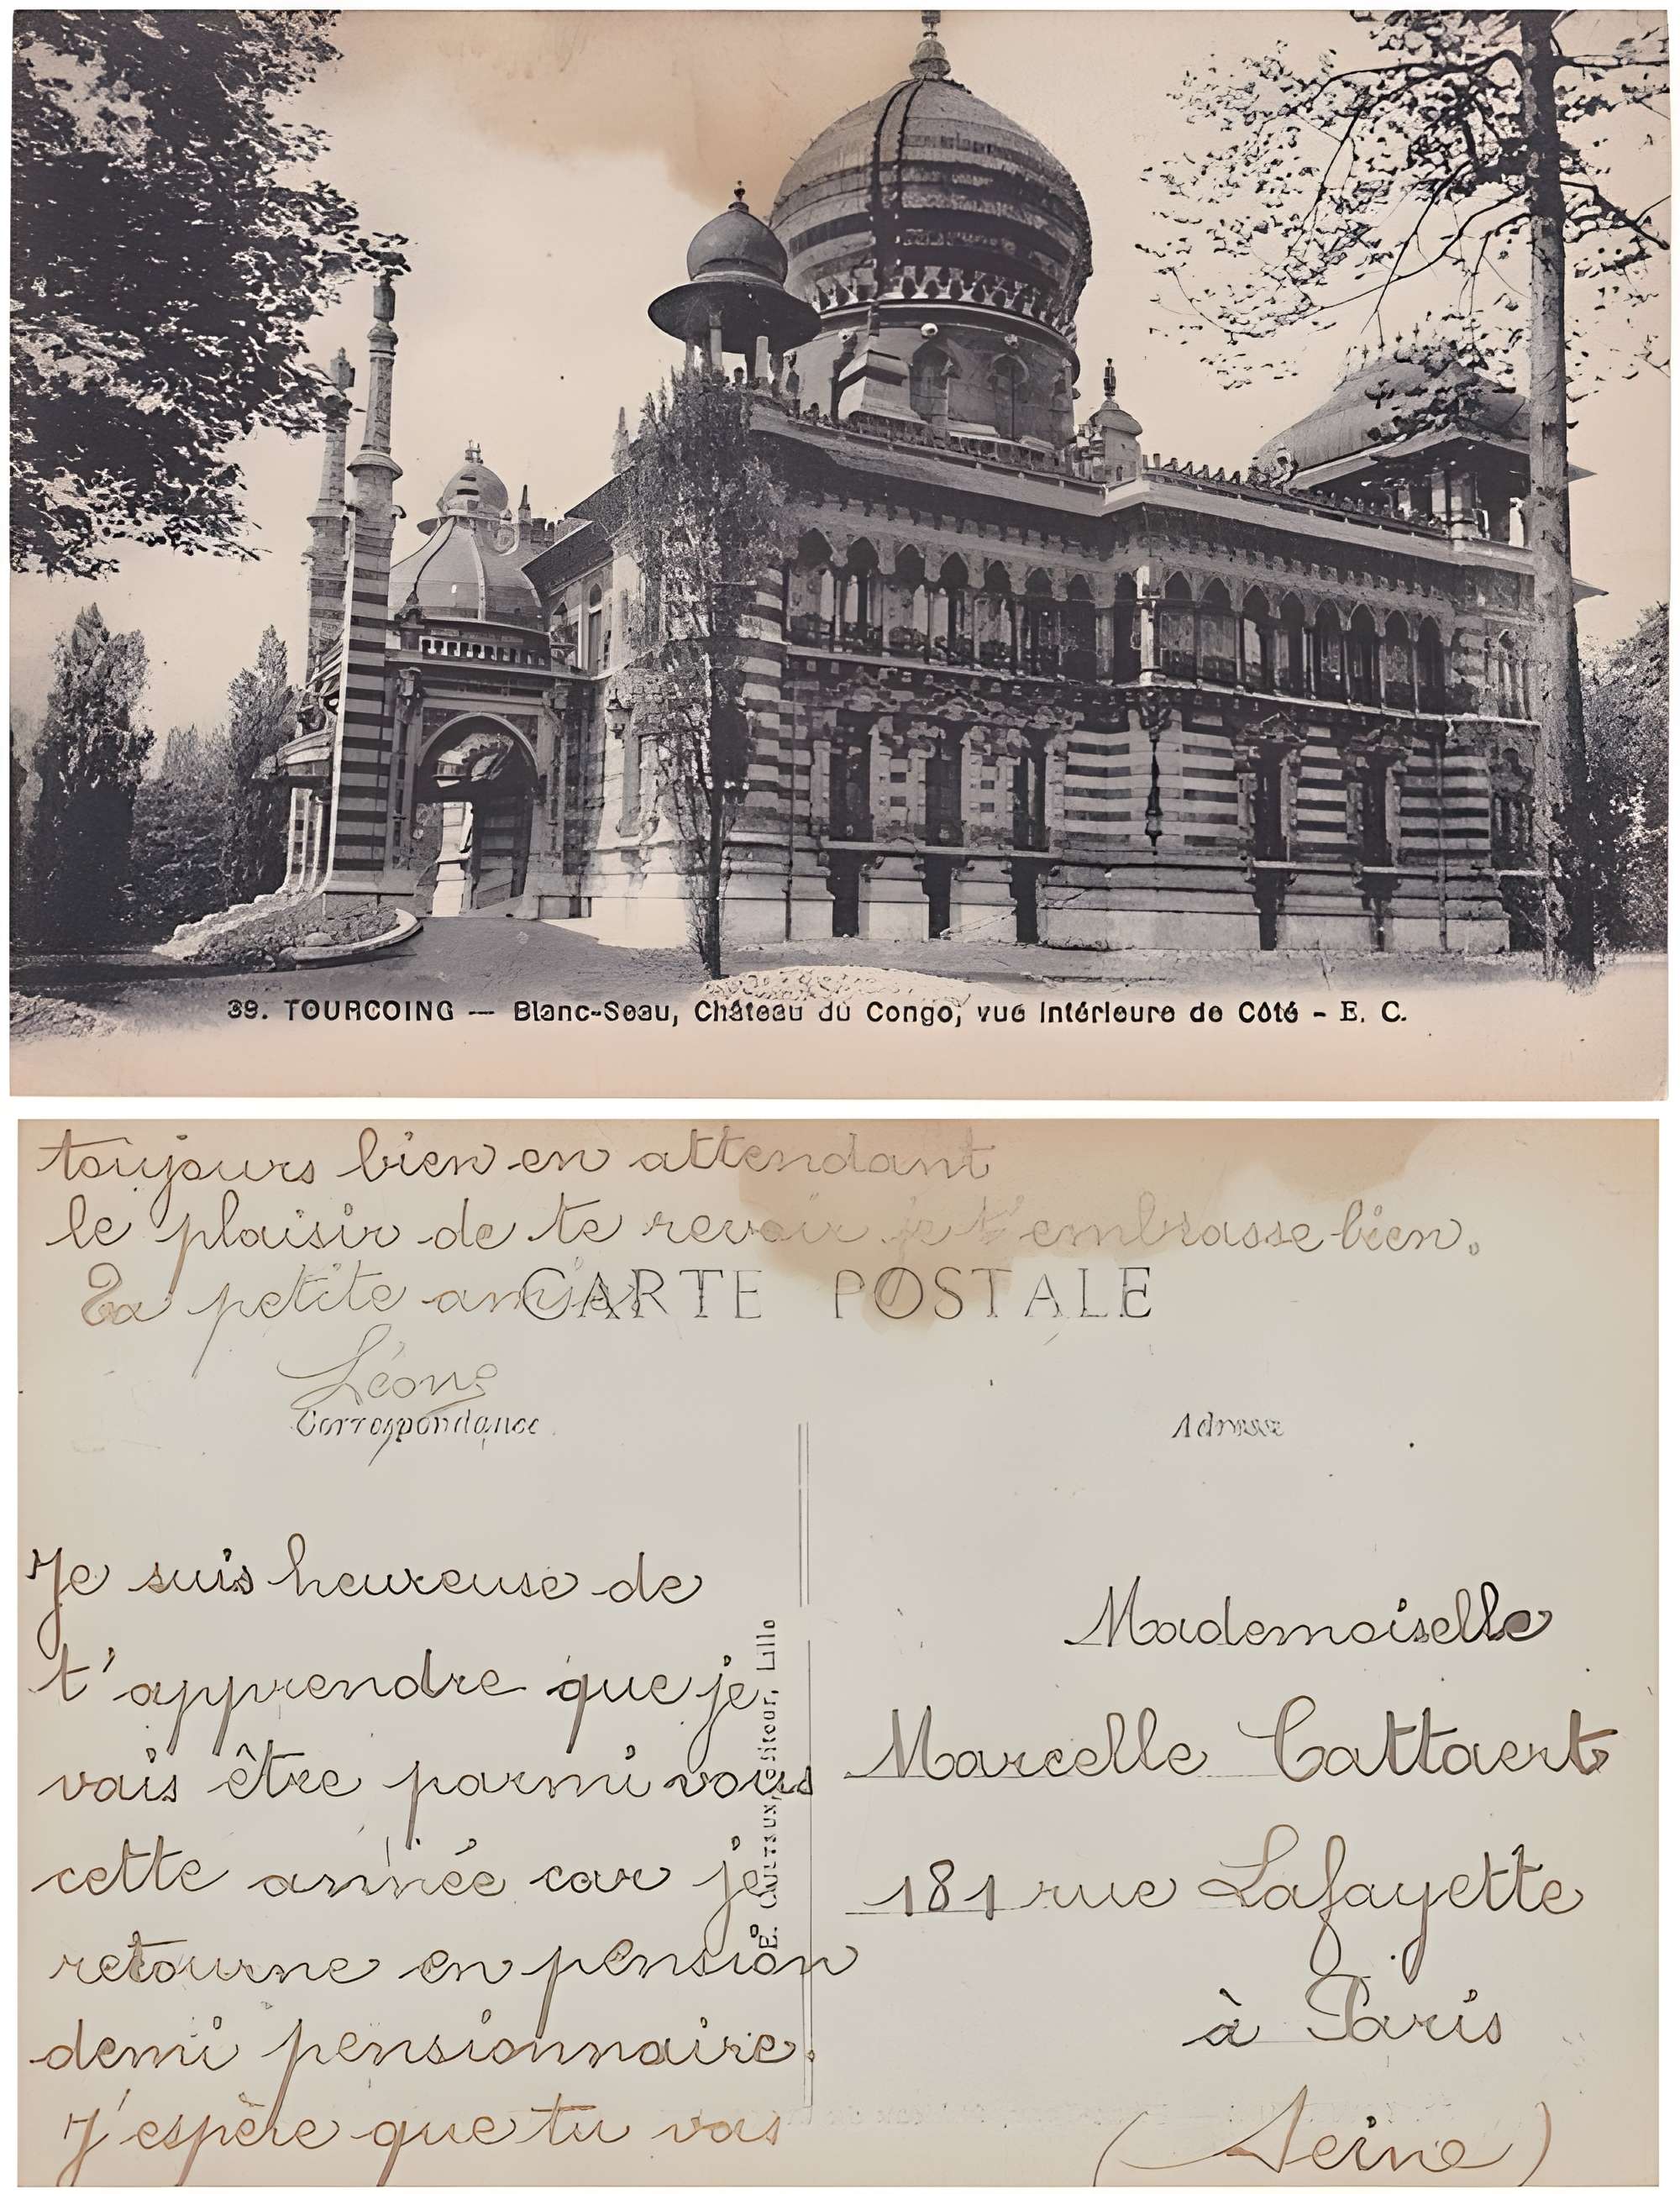 39. TOURCOING — Blanc-Seau, Château du Congo, vue intérieure de Côté - E. C.
toujours bien en attendant
le plaisir de te revoir je t'embrasse bien.
Ta petite amie
CARTE POSTALE
Léone
Correspondance
Adresse
Je suis heureuse de
t'apprendre que je
vais être parmi vous
cette année car je
retourne en pension
demi pensionnaire.
J'espère que tu vas
E. CAULTEUX, éditeur, Lille
Mademoiselle
Marcelle Cattaert
181 rue Lafayette
à Paris
(Seine)